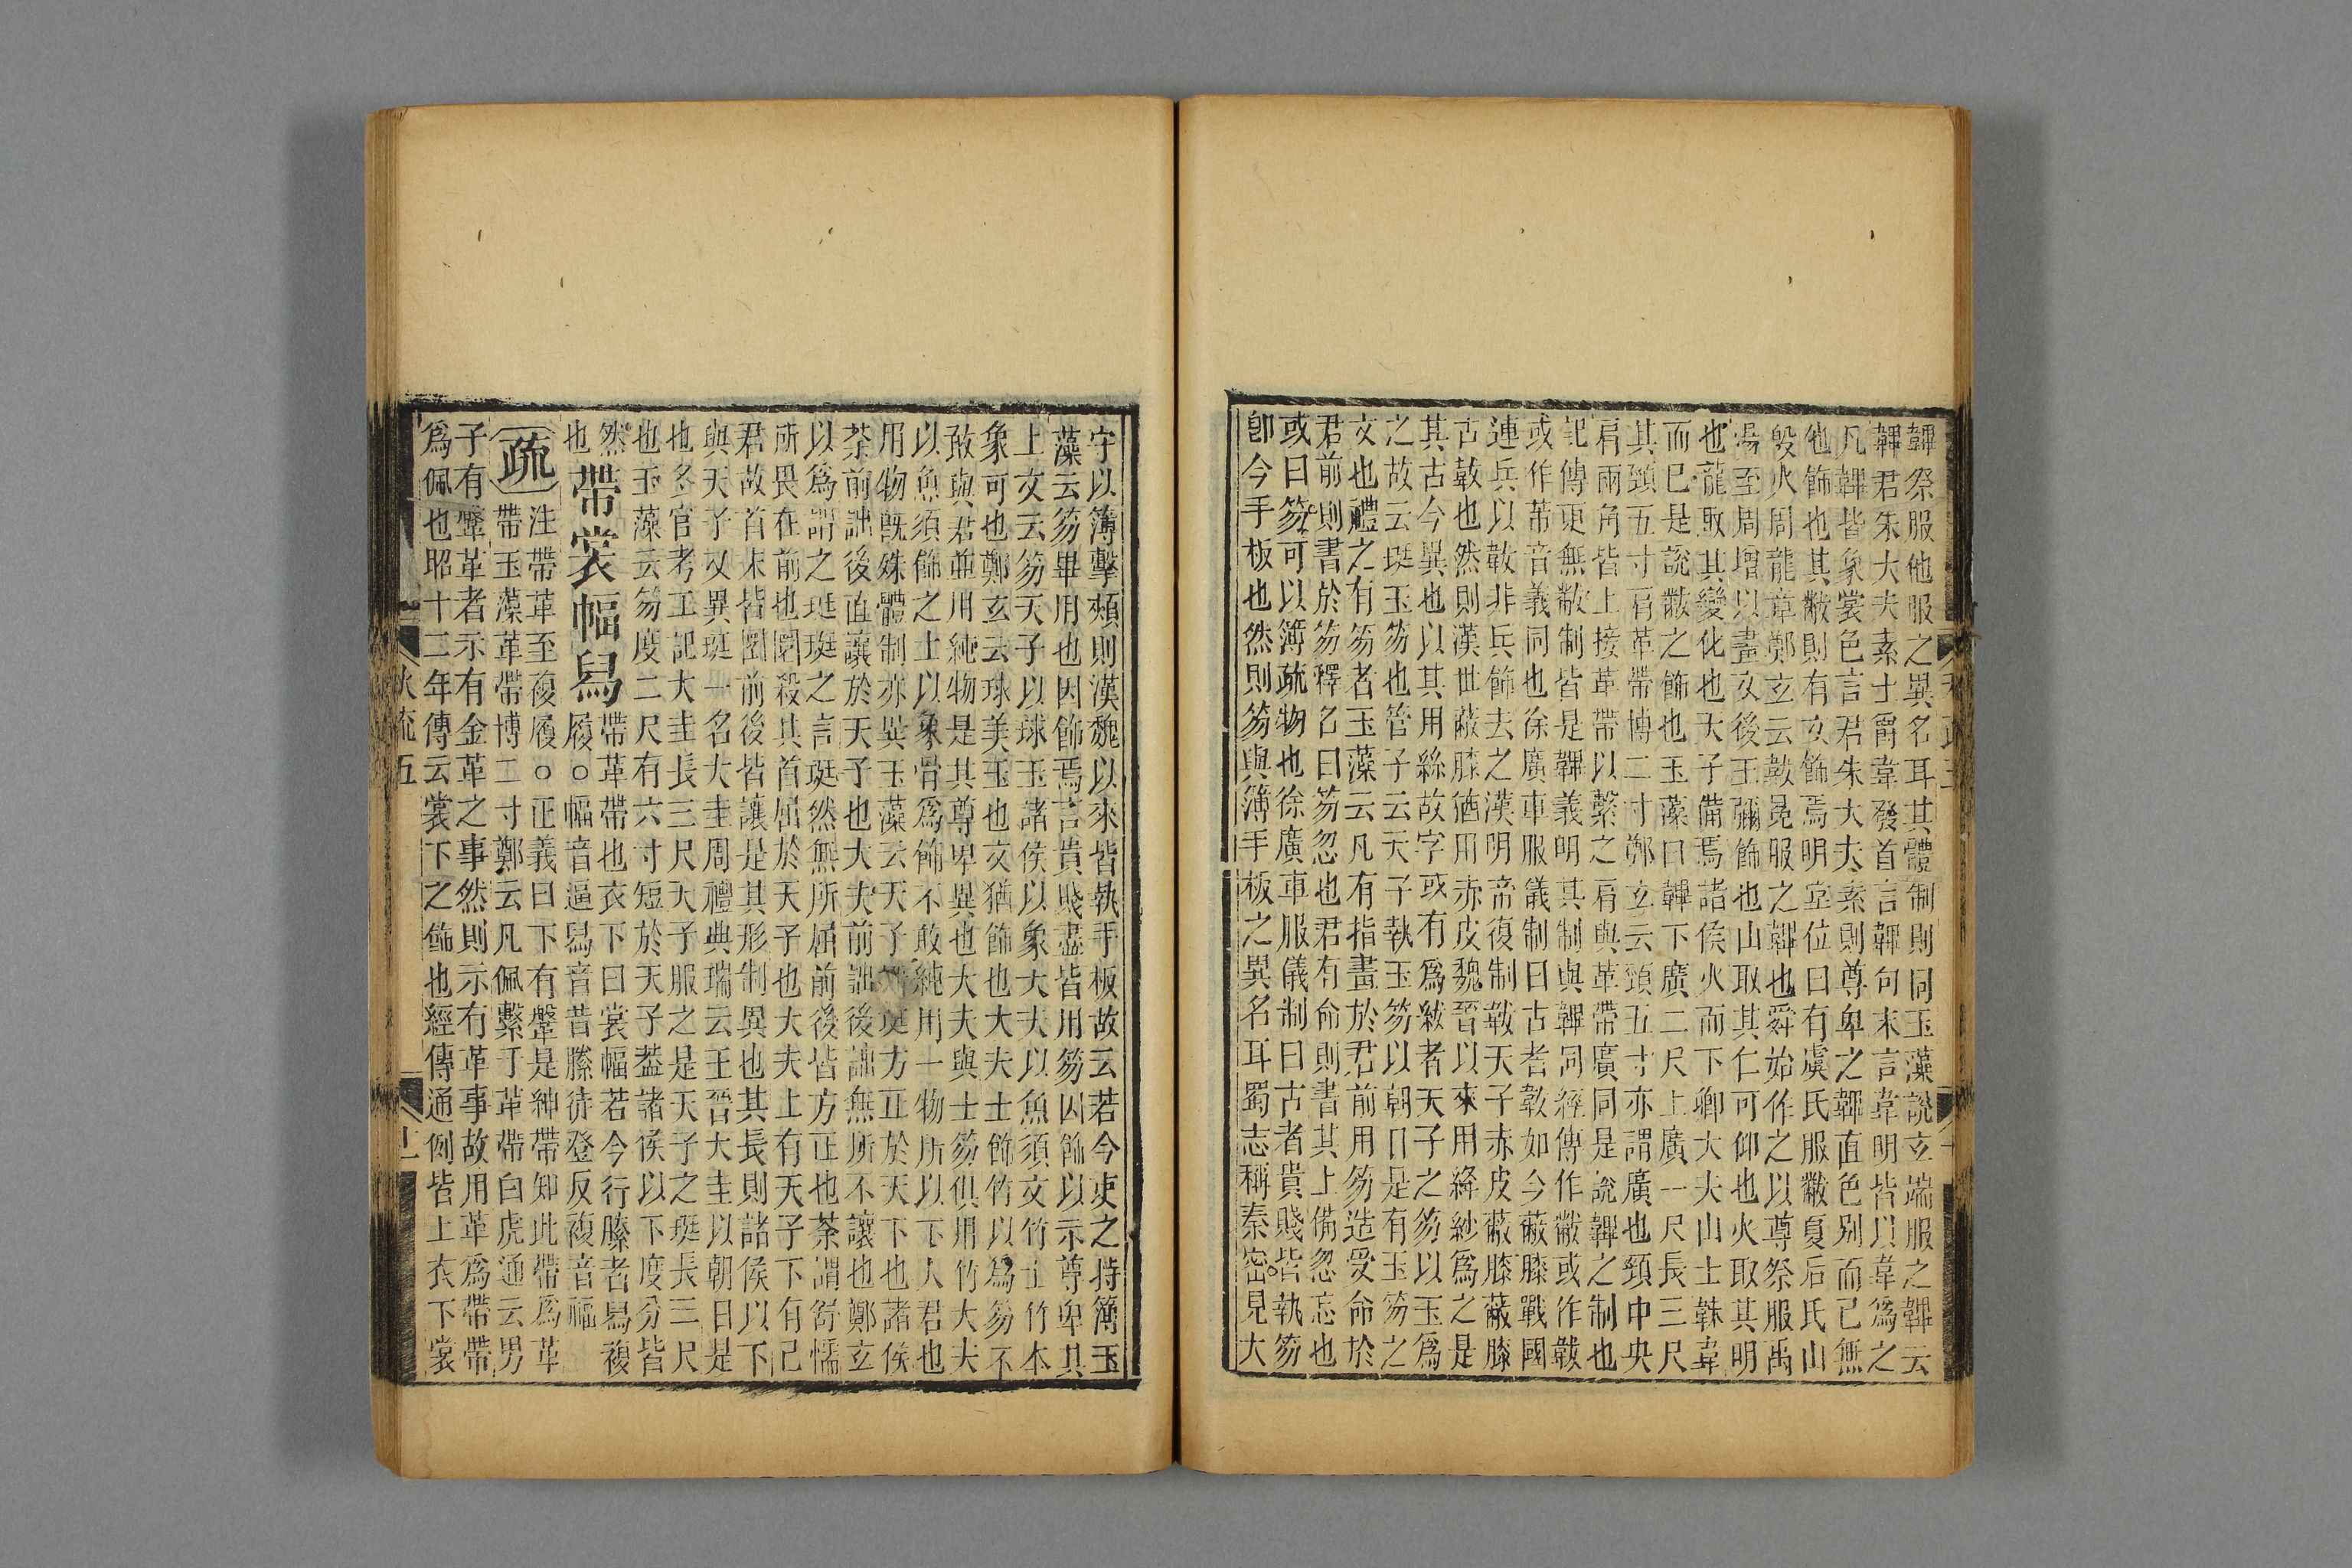 韠祭服他服之異名耳其體制則同玉藻說玄端服之韠云
韠君朱大夫素士爵韋發首言韠句末言韋明皆以韋爲之
凡韠皆象裳色言君朱大夫素則尊卑之韠直色別而已無
他飾也其黻則有文飾焉明堂位曰有虞氏服黻夏后氏山
殷火周龍章鄭玄云黻冕服之韠也舜始作之以尊祭服禹
湯至周增以畫文後王彌飾也山取其仁可仰也火取其明
也龍取其變化也天子備焉諸侯火而下卿大夫山士韎韋
而已是說黻之飾也玉藻曰韠下廣二尺上廣一尺長三尺
其頸五寸肩革帶博二寸鄭玄云頸五寸亦謂廣也頸中央
肩兩角皆上接革帶以繫之肩與革帶廣同是說韠之制也
記傳更無黻制皆是韠義明其制與韠同經傳作黻或作韍
或作芾音義同也徐廣車服儀制曰古者韍如今蔽膝戰國
連兵以韍非兵飾去之漢明帝復制韍天子赤皮蔽膝蔽膝
古韍也然則漢世蔽膝猶用赤皮魏晉以來用絳紗爲之是
其古今異也以其用絲故字或有爲紱者天子之笏以玉爲
之故云珽玉笏也管子云天子執玉笏以朝日是有玉笏之
文也禮之有笏者玉藻云凡有指畫於君前用笏造受命於
君前則書於笏釋名曰笏忽也君有命則書其上備忽忘也
或曰笏可以簿疏物也徐廣車服儀制曰古者貴賤皆執笏
卽今手板也然則笏與簿手板之異名耳蜀志稱秦密見大
守以簿擊頰則漢魏以來皆執手板故云若今吏之持簿玉
藻云笏畢用也因飾焉言貴賤盡皆用笏因飾以示尊卑其
上文云笏天子以球玉諸侯以象大夫以魚須文竹士竹本
象可也鄭玄云球美玉也文猶飾也大夫士飾竹以爲笏不
敢與君並用純物是其尊卑異也大夫與士笏俱用竹大夫
以魚須飾之士以象骨爲飾不敢純用一物所以下人君也
用物旣殊體制亦異玉藻云天子搢珽方正於天下也諸侯
荼前詘後直讓於天子也大夫前詘後詘無所不讓也鄭玄
以爲謂之珽珽之言珽然無所屈前後皆方正也荼謂舒懦
所畏在前也圜殺其首屈於天子也大夫上有天子下有己
君故首末皆圜前後皆讓是其形制異也其長則諸侯以下
與天子又異珽一名大圭周禮典瑞云王晉大圭以朝日是
也冬官考工記大圭長三尺天子服之是天子之珽長三尺
也玉藻云笏度二尺有六寸短於天子葢諸侯以下度分皆
然帶裳幅舄帶革帶也衣下曰裳幅若今行縢者舄複
也履○幅音逼舄音昔縢徒登反複音福
疏注帶革至複履○正義曰下有鞶是紳帶知此帶爲革
帶玉藻革帶博二寸鄭云凡佩繫于革帶白虎通云男
子有鞶革者示有金革之事然則示有革事故用革爲帶帶
爲佩也昭十二年傳云裳下之飾也經傳通例皆上衣下裳